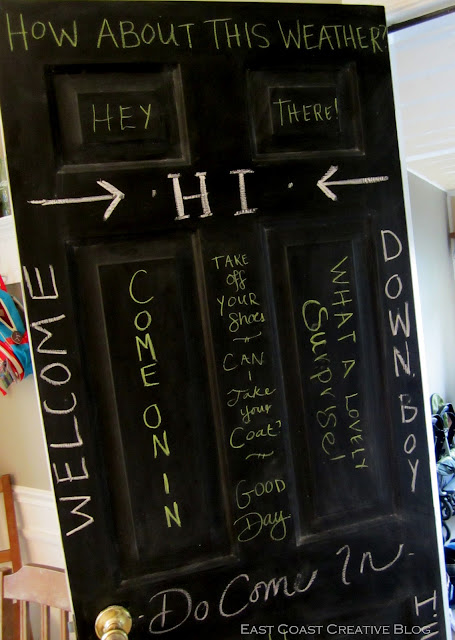 HOW ABOUT THIS WEATHER?
HEY
THERE!
→ · HI · ←
WELCOME
COME ON IN
TAKE
off
YOUR
Shoes
~
CAN
I
Take
your
Coat?
~
GOOD
Day
WHAT A LOVELY
Surprise!
DOWN BOY
Do Come In
EAST COAST CREATIVE BLOG